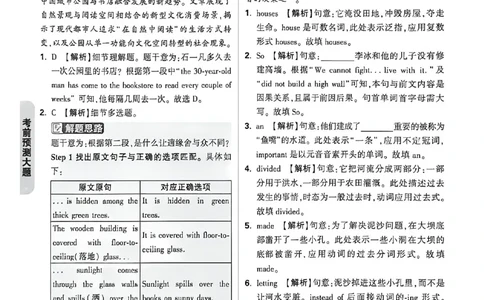 中国城市公园与书店融合发展的新趋势。文章展现了
自然景观与阅读空间相结合的新型文化消费场景,揭
示了现代都市人追求“在自然中阅读”的生活方式转
变,以及公园从单一功能向文化空间转型的社会现象。
1. D 【解析】细节理解题。题干意为:石一凡多久去
一次公园里的书店?根据第一段中“the 30-year-old
man has come to the bookstore to read every couple of
weeks”可知,他每隔几周去一次。故选 D。
2. C 【解析】细节多选题。
解题思路
题干意为:根据第二段,是什么让邂缘舍与众不同?
Step 1 找出原文句子与正确的选项匹配。具体如
下:
原文原句 对应正确选项
... is hidden among the It is hidden in green
thick green trees. trees.
The wooden building is
covered with floor-to-
ceiling(落地)glass...
It is covered with floor-to-
ceiling glass.
... sunlight comes
through the glass walls Sunlight spills over the
and spills(洒)over the books on sunny days.
考前预测大题
1. houses 【解析】句意:它淹没田地,冲毁房屋,夺走
生命。house 是可数名词,此处表示泛指,应用复数
形式 houses。故填 houses。
2. So 【解析】句意:________李冰和他的儿子没有修
建高墙。根据“We cannot fight... live with it.”及
“did not build a high wall”可知,本句与前文内容是
因果关系,且属于前因后果。句首单词首字母需大
写。故填 So。
3. an 【解析】句意:他们建成了________重要的被称为
“鱼嘴”的水道。此处表示“一条”,应用不定冠词,
important 是以元音音素开头的单词。故填 an。
4. divided 【解析】句意:它把河流分成两部分:一部
分用于洪水,一部分用于农田灌溉。此处描述过去
发生的事情,时态为一般过去时,动词应用过去式。
故填 divided。
5. made 【解析】句意:为了解决泥沙问题,在大坝底
部凿开了一些小孔。此处表示一些小洞在大坝的
底部被凿开,应用动词的过去分词形式。故填
made。
6. letting 【解析】句意:泥沙掉进这些小孔里,而不是
让河水变脏。instead of 后面接动词的-ing 形式。